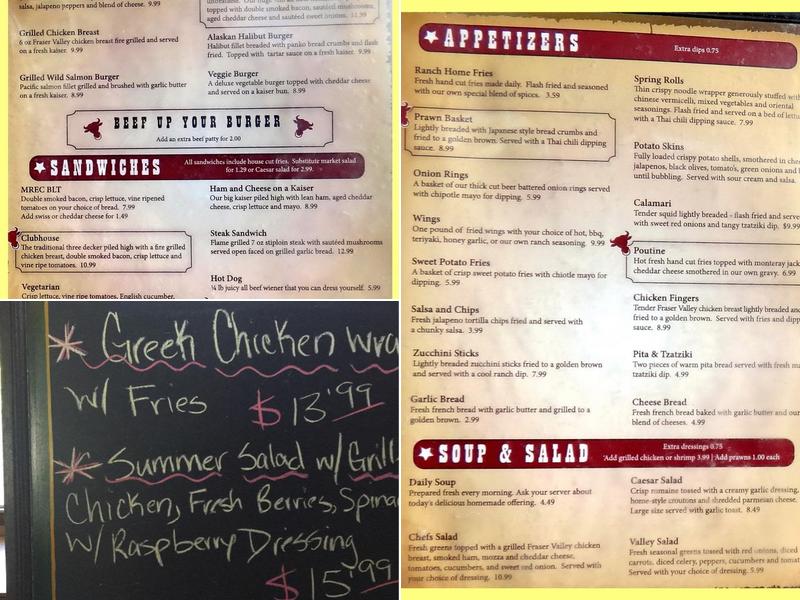 salsa, jalapeno peppers and blend of cheese. 9.99
Grilled Chicken Breast
6 oz Fraser Valley chicken breast fire grilled and served
on a fresh kaiser. 9.99
Grilled Wild Salmon Burger
Pacific salmon fillet grilled and brushed with garlic butter
on a fresh kaiser. 8.99
topped with double smoked bacon, sautéed mushrooms,
aged cheddar cheese and sautéed sweet onions. 11.99
Alaskan Halibut Burger
Halibut fillet breaded with panko bread crumbs and flash
fried. Topped with tartar sauce on a fresh kaiser. 9.99
Veggie Burger
A deluxe vegetable burger topped with cheddar cheese
and served on a kaiser bun. 8.99
BEEF UP YOUR BURGER
Add an extra beef patty for 2.00
SANDWICHES
All sandwiches include house cut fries. Substitute market salad
for 1.29 or Caesar salad for 2.99.
MREC BLT
Double smoked bacon, crisp lettuce, vine ripened
tomatoes on your choice of bread. 7.99
Add swiss or cheddar cheese for 1.49
Clubhouse
The traditional three decker piled high with a fire grilled
chicken breast, double smoked bacon, crisp lettuce and
vine ripe tomatoes. 10.99
Vegetarian
Crisp lettuce, vine ripe tomatoes, English cucumber,
Ham and Cheese on a Kaiser
Our big kaiser piled high with lean ham, aged cheddar
cheese, crisp lettuce and mayo. 8.99
Steak Sandwich
Flame grilled 7 oz striploin steak with sautéed mushrooms
served open faced on grilled garlic bread. 12.99
Hot Dog
¼ lb juicy all beef wiener that you can dress yourself. 5.99
Greek Chicken Wra
w/ Fries $13.99
Summer Salad w/ Grill
Chicken, Fresh Berries, Spina
w/ Raspberry Dressing
$15.99
APPETIZERS
Extra dips 0.75
Ranch Home Fries
Fresh hand cut fries made daily. Flash fried and seasoned
with our own special blend of spices. 3.59
Prawn Basket
Lightly breaded with Japanese style bread crumbs and
fried to a golden brown. Served with a Thai chili dipping
sauce. 8.99
Onion Rings
A basket of our thick cut beer battered onion rings served
with chipotle mayo for dipping. 5.99
Wings
One pound of fried wings with your choice of hot, bbq,
teriyaki, honey garlic, or our own ranch seasoning. 9.99
Sweet Potato Fries
A basket of crisp sweet potato fries with chiotle mayo for
dipping. 5.99
Salsa and Chips
Fresh jalapeno tortilla chips fried and served with
a chunky salsa. 3.99
Zucchini Sticks
Lightly breaded zucchini sticks fried to a golden brown
and served with a cool ranch dip. 7.99
Garlic Bread
Fresh french bread with garlic butter and grilled to a
golden brown. 2.99
Spring Rolls
Thin crispy noodle wrapper generously stuffed with
chinese vermicelli, mixed vegetables and oriental
seasonings. Flash fried and served on a bed of lettu
with a Thai chili dipping sauce. 7.99
Potato Skins
Fully loaded crispy potato shells, smothered in chee
jalapenos, black olives, tomato's, green onions and b
until bubbling. Served with sour cream and salsa.
Calamari
Tender squid lightly breaded - flash fried and serve
with sweet red onions and tangy tzatziki dip. $9.99
Poutine
Hot fresh hand cut fries topped with monteray jack
cheddar cheese smothered in our own gravy. 6.99
Chicken Fingers
Tender Fraser Valley chicken breast lightly breaded an
fried to a golden brown. Served with fries and dipp
sauce. 8.99
Pita & Tzatziki
Two pieces of warm pita bread served with fresh m
tzatziki dip. 4.99
Cheese Bread
Fresh french bread baked with garlic butter and our
blend of cheeses. 4.99
SOUP & SALAD
Extra dressings 0.75
Add grilled chicken or shrimp 3.99 | Add prawns 1.00 each
Daily Soup
Prepared fresh every morning. Ask your server about
today's delicious homemade offering. 4.49
Chefs Salad
Fresh greens topped with a grilled Fraser Valley chicken
breast, smoked ham, mozza and cheddar cheese,
tomatoes, cucumbers, and sweet red onion. Served with
your choice of dressing. 10.99
Caesar Salad
Crisp romaine tossed with a creamy garlic dressing,
home-style croutons and shredded parmesan cheese.
Large size served with garlic toast. 8.49
Valley Salad
Fresh seasonal greens tossed with red onions, diced
carrots, diced celery, peppers, cucumbers and tomat
Served with your choice of dressing. 5.99